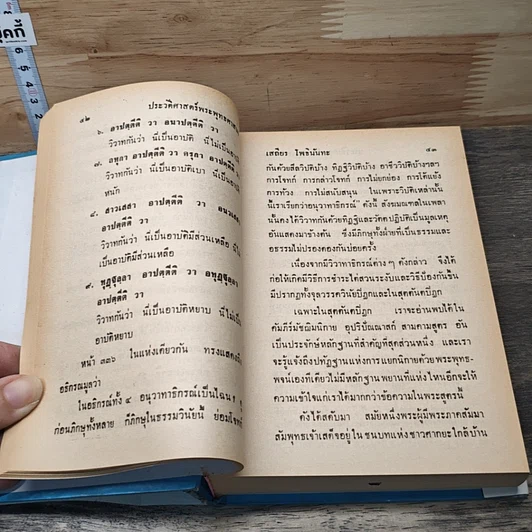 ๔๒ ประวัติศาสตร์พระพุทธศาสน
๖. อาปตฺตีติ วา อนาปตฺตีติ วา
วิวาทกันว่า นี่เป็นอาบัติ นี่ไม่เป็นอาบัติ
๗. ลหุกา อาปตฺตีติ วา ครุกา อาปตฺตีติ
วิวาทกันว่า นี่เป็นอาบัติเบา นี่เป็นอาบัติ
หนัก
๘. สาวเสสา อาปตฺตีติ วา อนวเส
อาปตฺตีติ วา
วิวาทกันว่า นี่เป็นอาบัติมีส่วนเหลือ นี่ไม่
เป็นอาบัติมีส่วนเหลือ
๙. ทุฏฺฐุลฺลา อาปตฺตีติ วา อทุฏฺฐุลฺลา
อาปตฺตีติ วา
วิวาทกันว่า นี่เป็นอาบัติหยาบ นี่ไม่เป็น
อาบัติหยาบ
หน้า ๓๓๖ ในแห่งเดียวกัน ทรงแสดงถึง
อธิกรณมูลว่า
ในอธิกรณ์ทั้ง ๔ อนุวาทาธิกรณ์เป็นไฉน ?
ก่อนภิกษุทั้งหลาย ก็ภิกษุในธรรมวินัยนี้ ย่อมโจทก์
เสถียร โพธินันทะ ๔๓
กันด้วยศีลวิบัติบ้าง ทิฏฐิวิบัติบ้าง อาชีววิบัติบ้างฯลฯ
การโจทก์ การกล่าวโจทก์ การไม่ยกย่อง การโต้แย้ง
การท้วง การไม่สนับสนุน ในเพราะวิบัติเหล่านั้น
นี้เราเรียกว่าอนุวาทาธิกรณ์" ดังนี้ สังฆมณฑลในเพลา
นั้นคงได้วิวาทกันด้วยทิฏฐิและวัตตปฏิบัติเป็นมูลเหตุ
อันแสดงมาข้างต้น ซึ่งมีภิกษุทั้งฝ่ายที่เป็นธรรมและ
อธรรมไม่ปรองดองกันบ่อยครั้ง
เนื่องจากมีวิวาทาธิกรณ์ต่าง ๆ ดังกล่าว จึงได้
ก่อให้เกิดมีวิธีการชำระไต่สวนระงับและวิธีป้องกันขึ้น
มีปรากฏทั้งจุลวรรควินัยปิฎกและในสุตตันตปิฎก
เฉพาะในสุตตันตปิฎก เราจะอ่านพบได้ใน
คัมภีร์มัชฌิมนิกาย อุปริปัณณาสก์ สามคามสูตร อัน
เป็นประจักษ์หลักฐานที่สำคัญที่สุดส่วนหนึ่ง และเรา
จะรู้แจ้งถึงปทัฏฐานแห่งการแยกนิกายด้วย พระพุทธ-
พจน์เองทีเดียวไม่มีหลักฐานพยานที่แห่งไหนอีกจะให้
ความเข้าใจแก่เราได้มากกว่าข้อความในพระสูตรนี้
ดังได้สดับมา สมัยหนึ่งพระผู้มีพระภาคสัมมา
สัมพุทธเจ้าเสด็จอยู่ใน ชนบทแห่งชาวศากยะใกล้บ้าน